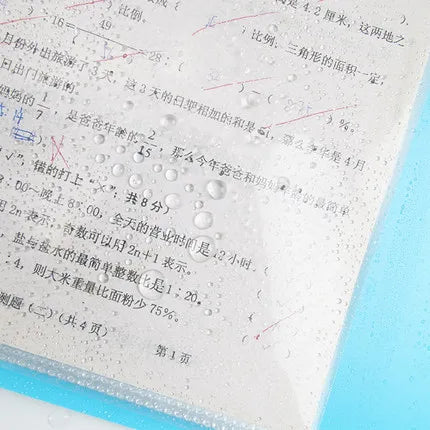 是 4.2 厘米，这两地之
）比例。 ）.
16= 49 =28：（ ）比例，三角形的面积一定，
月份外出旅游了 3 天，这 3 天的日期相加的和是 （ ）%。
日出门旅游的。 月 4 月
妈妈的 1/7 是爸爸年龄的 2/15，那么今年爸爸和妈妈 的最简单
√”，错的打上“×”，共 8 分）
：00~晚上 8：00，全天的营业时间是 12 小时。（
用 2n 表示，奇数可以用 2n+1 表示。
盐与盐水的最简单整数比是 1：20。
：4，则大米重量比面粉少 75%。
测题（二）（共 4 页）
第 1 页